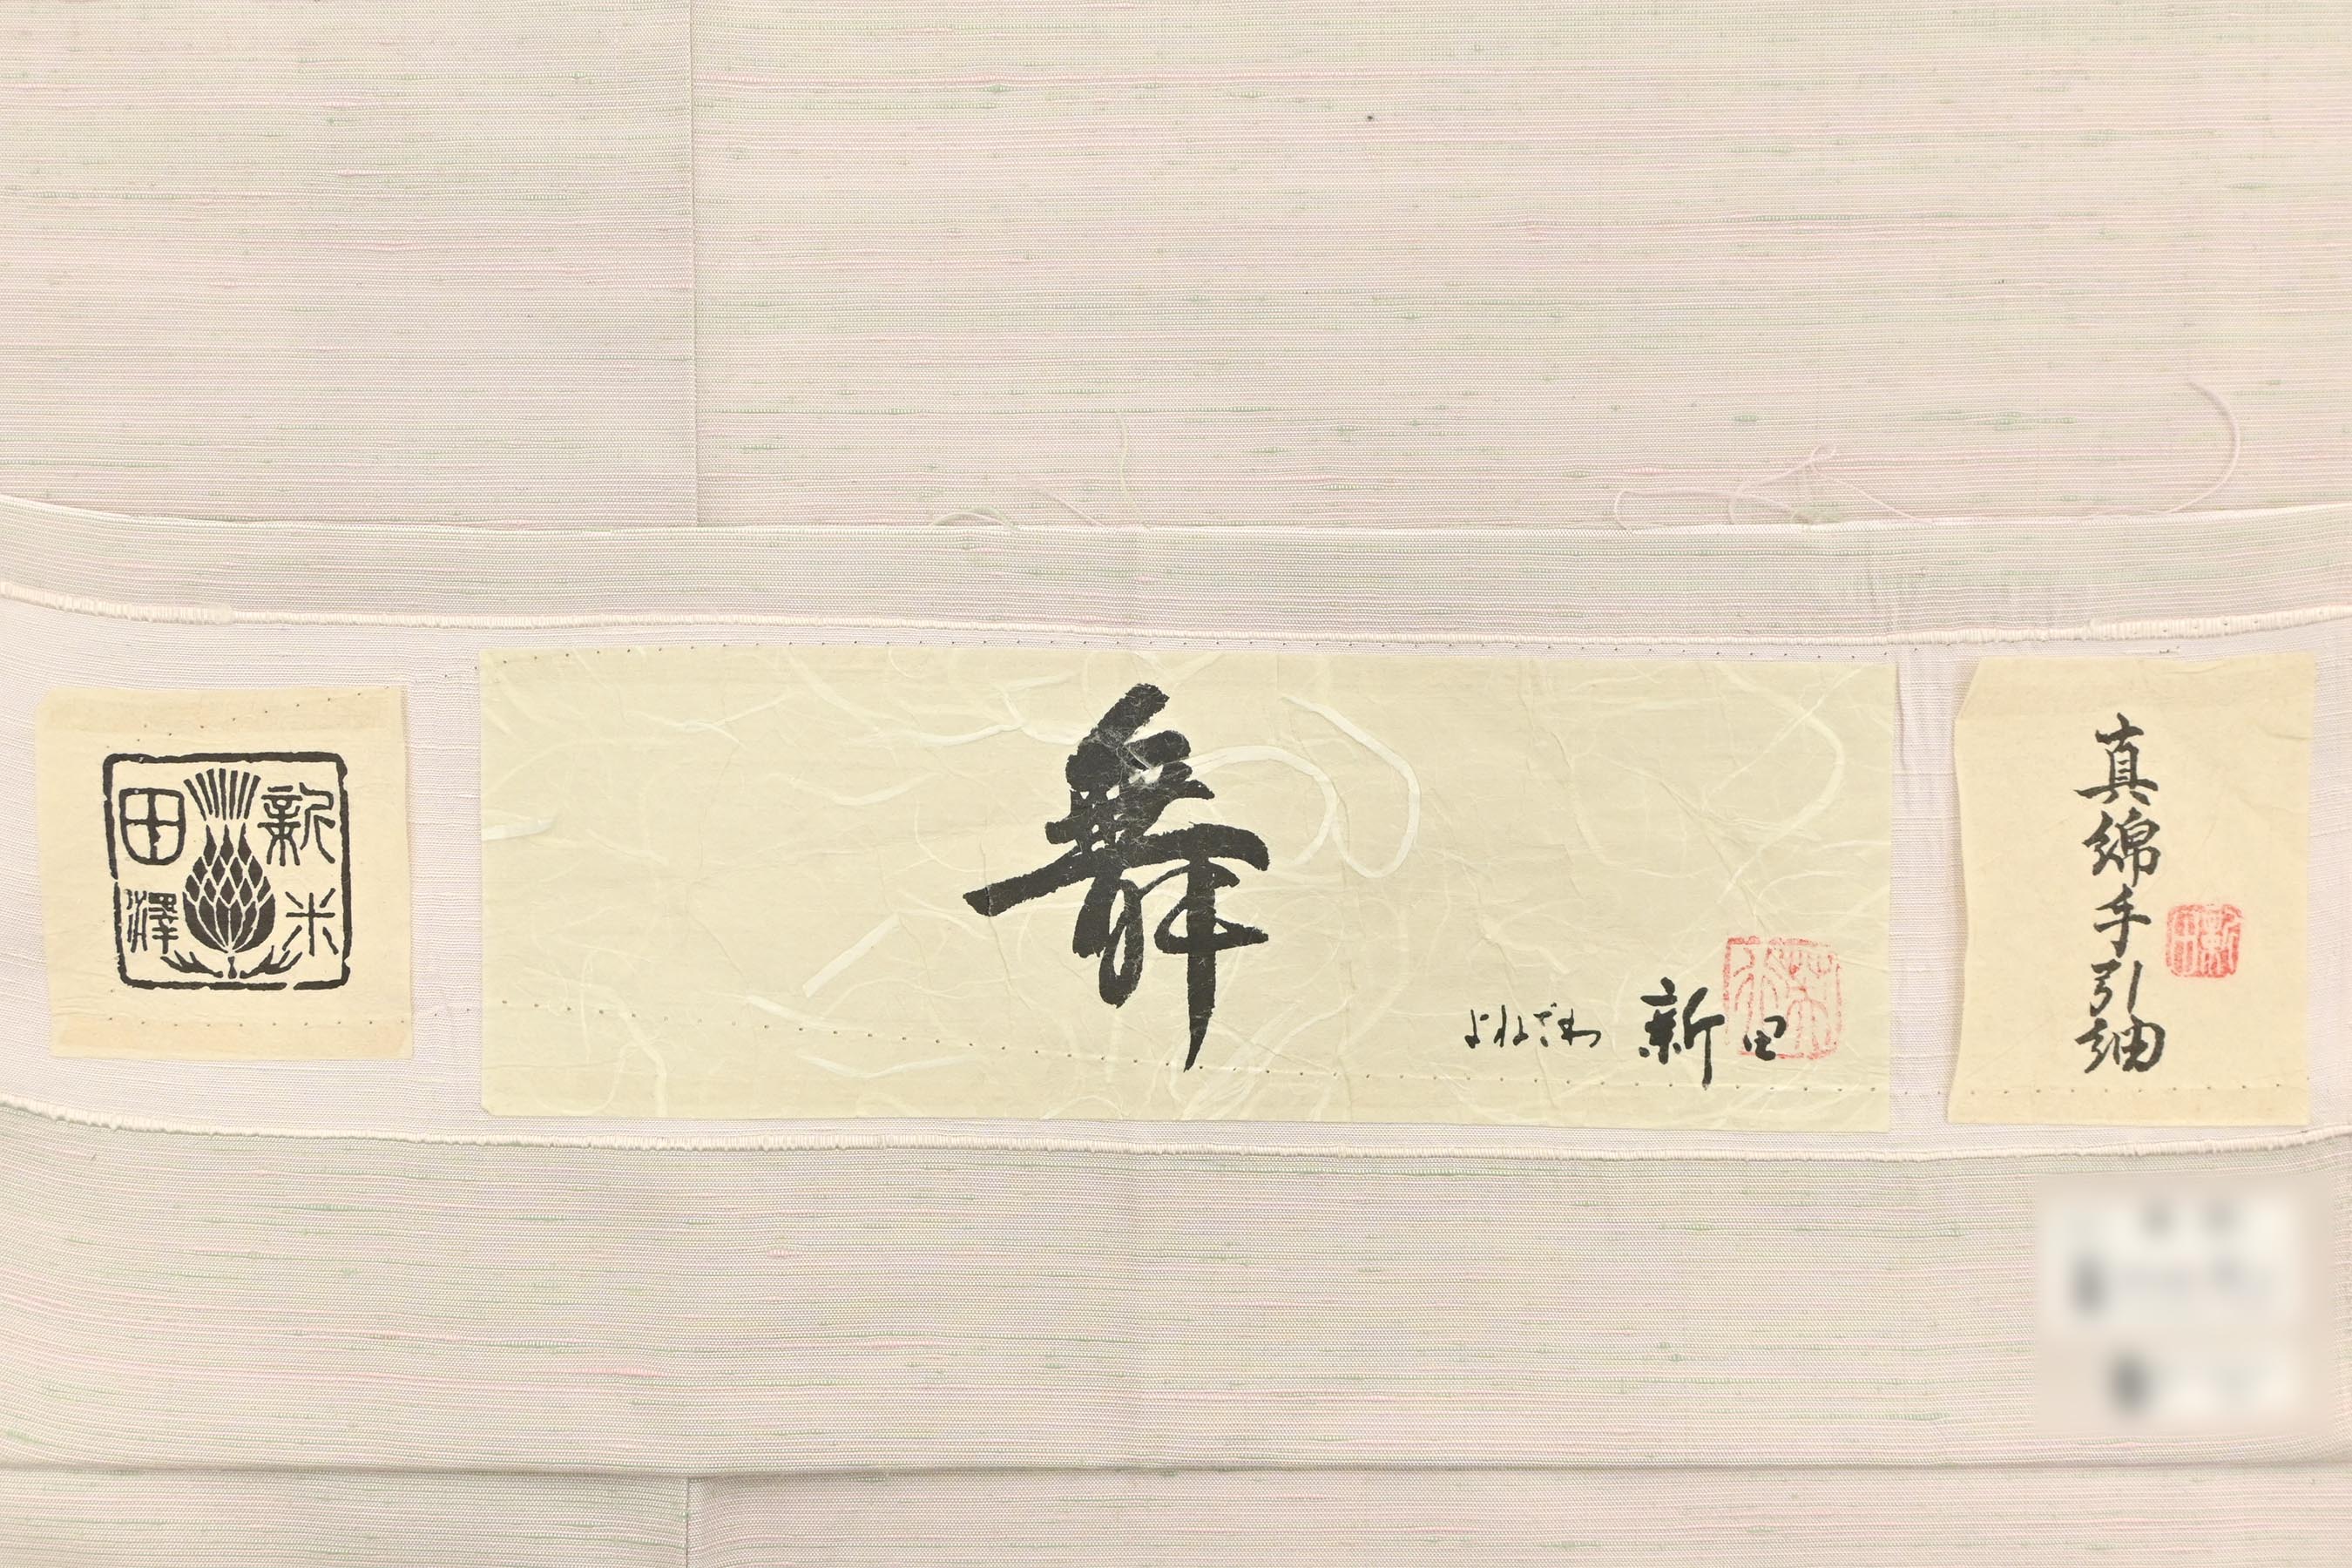 新田
米澤
舞
よねざわ 新田
真綿手引紬
新田